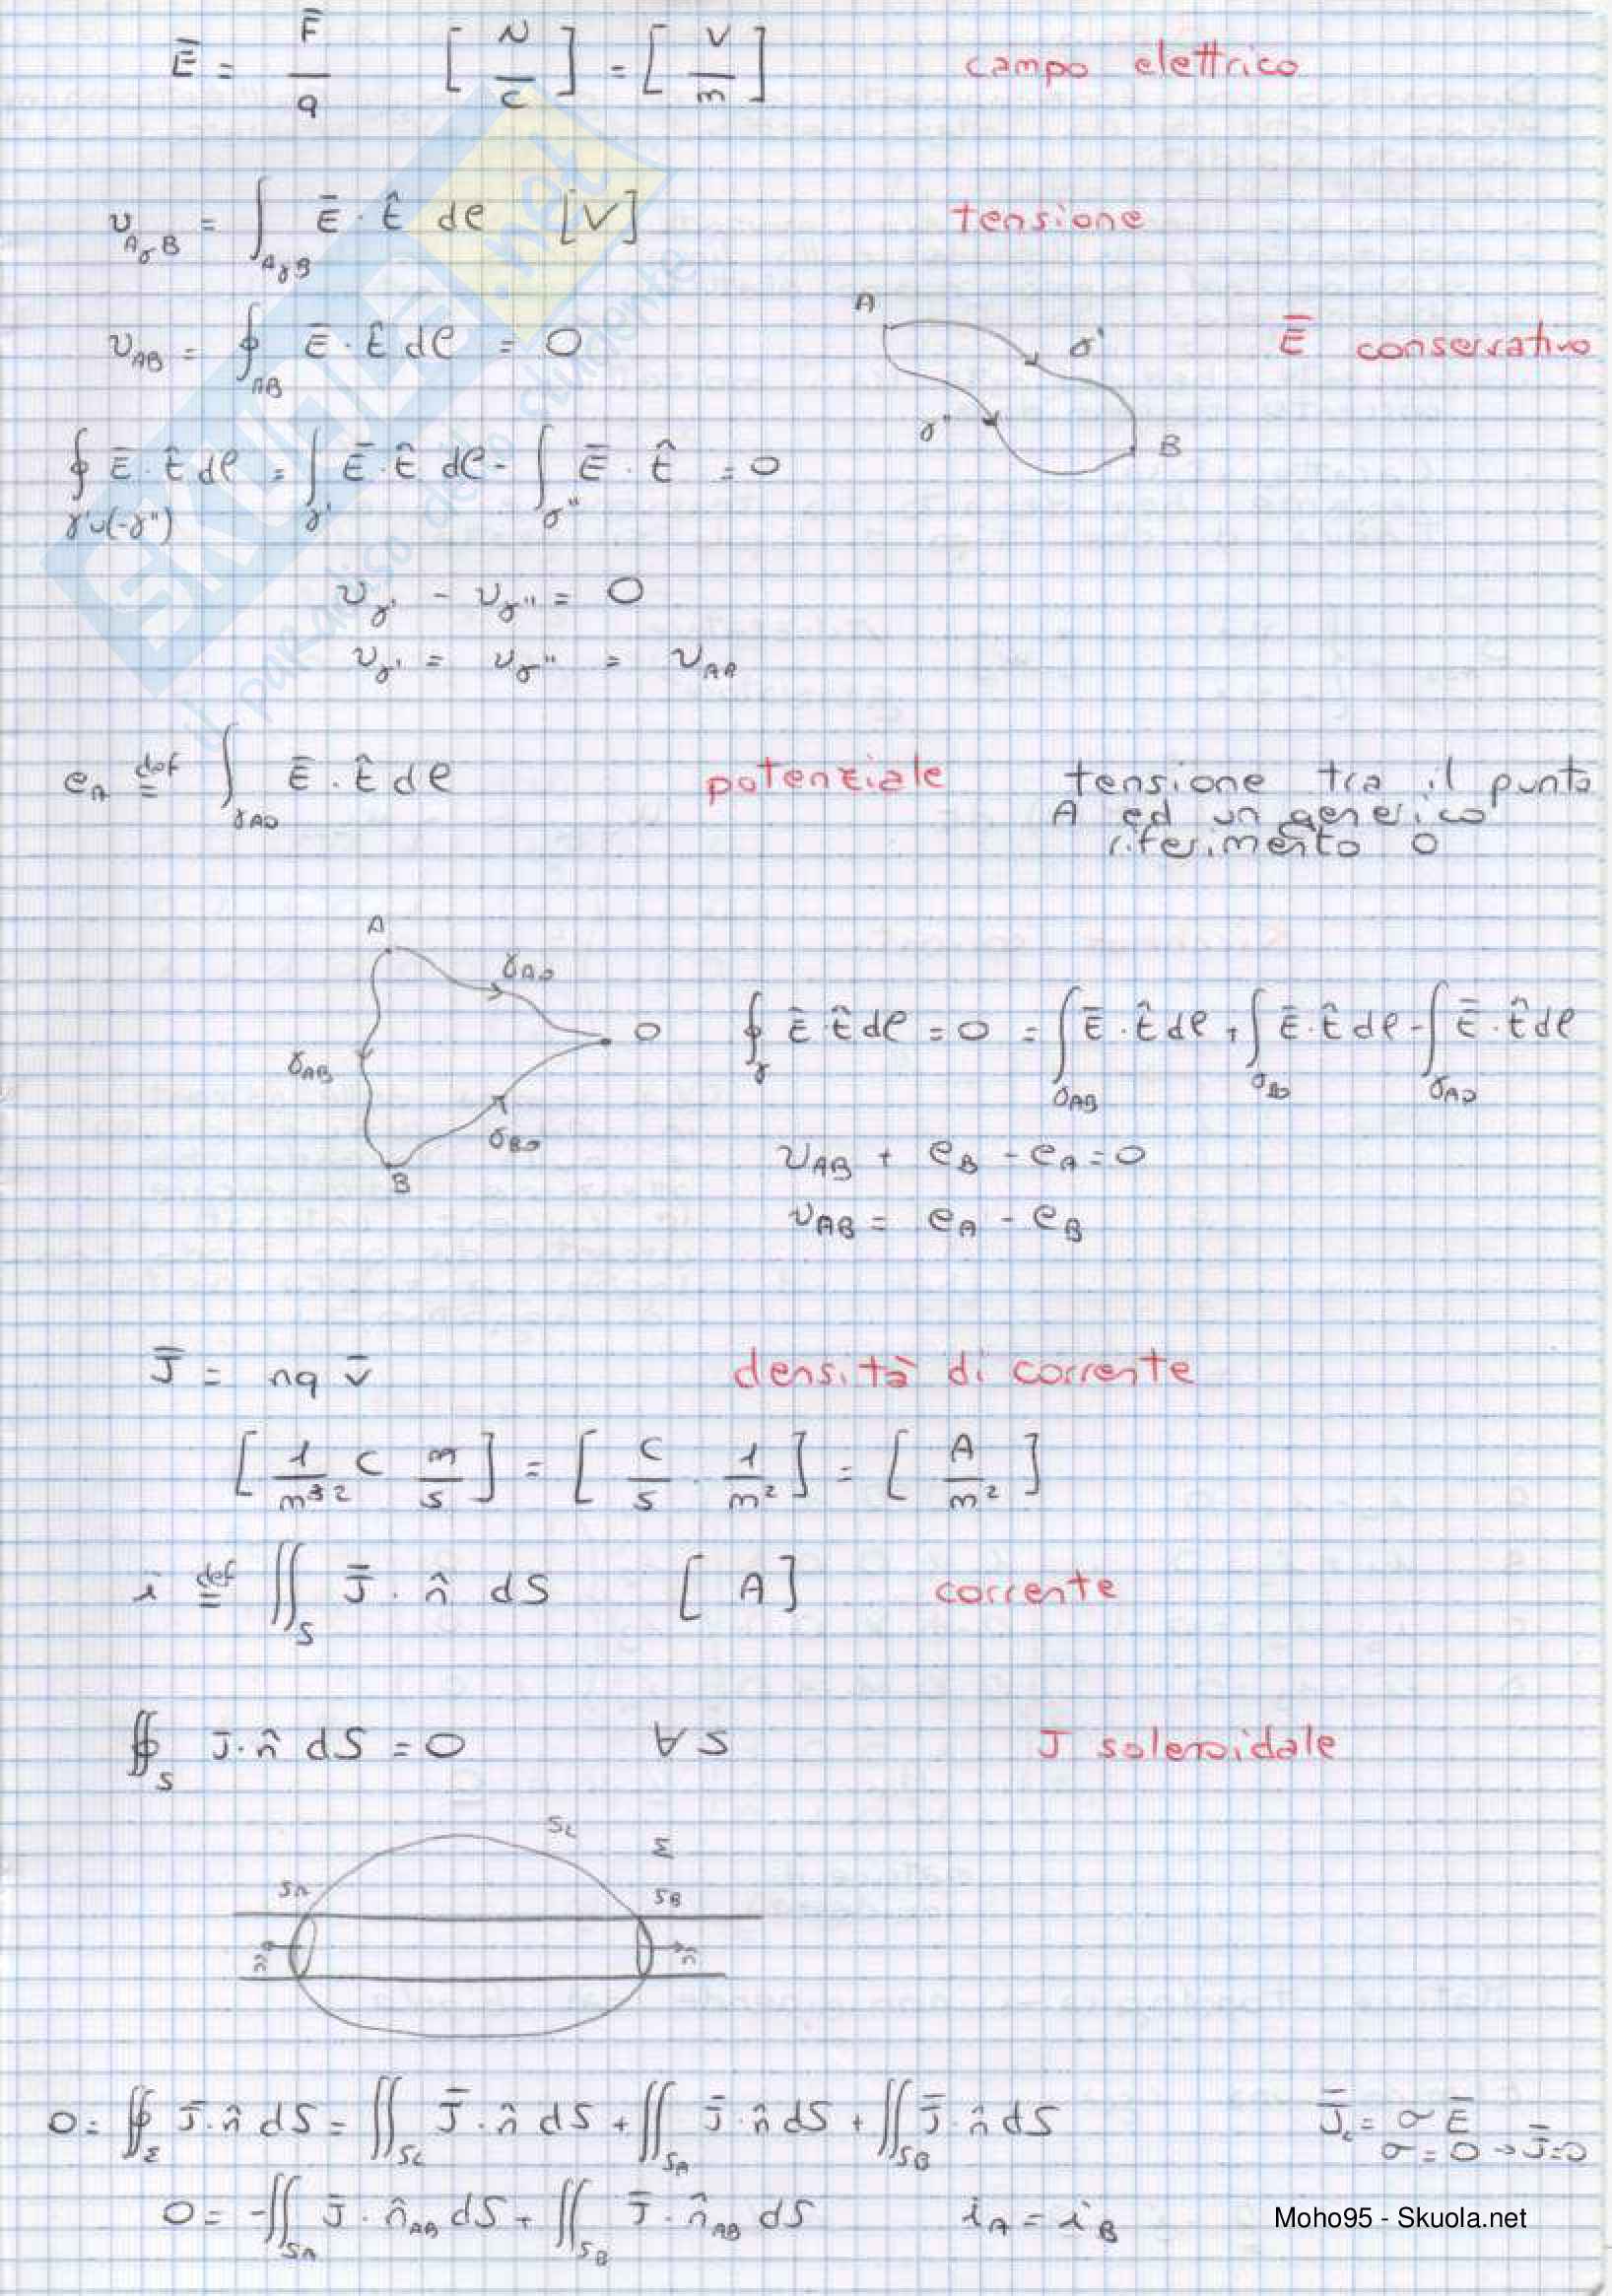 Ē = F̄/q [N/C] = [V/m] campo elettrico
v_AγB = ∫_AγB Ē · t̂ dℓ [V] tensione
v_AB = ∮_AB Ē · t̂ dℓ = 0 Ē conservativo
A γ' γ'' B
∮_γ'∪(-γ'') Ē · t̂ dℓ = ∫_γ' Ē · t̂ dℓ - ∫_γ'' Ē · t̂ = 0
v_γ' - v_γ'' = 0
v_γ' = v_γ'' = v_AB
e_A def= ∫_γAO Ē · t̂ dℓ potenziale tensione tra il punto
A ed un generico
riferimento O
A γ_AO O γ_AB γ_BO B
∮_γ Ē · t̂ dℓ = 0 = ∫_γAB Ē · t̂ dℓ + ∫_γBO Ē · t̂ dℓ - ∫_γAO Ē · t̂ dℓ
v_AB + e_B - e_A = 0
v_AB = e_A - e_B
J̄ = nq v̄ densità di corrente
[1/m³² C m/s] = [C/s · 1/m²] = [A/m²]
i def= ∬_S J̄ · n̂ dS [A] corrente
∯_S J · n̂ dS = 0 ∀ S J solenoidale
S_L Σ
S_A S_B
n̂ n̂
0 = ∯_Σ J̄ · n̂ dS = ∬_SL J̄ · n̂ dS + ∬_SA J̄ · n̂ dS + ∬_SB J̄ · n̂ dS J̄_L = σ Ē
σ = 0 → J̄ = 0
0 = -∬_SA J̄ · n̂_AB dS + ∬_SB J̄ · n̂_AB dS i_A = i_B
Moho95 - Skuola.net
SKUOLA.net
il paradiso dello studente